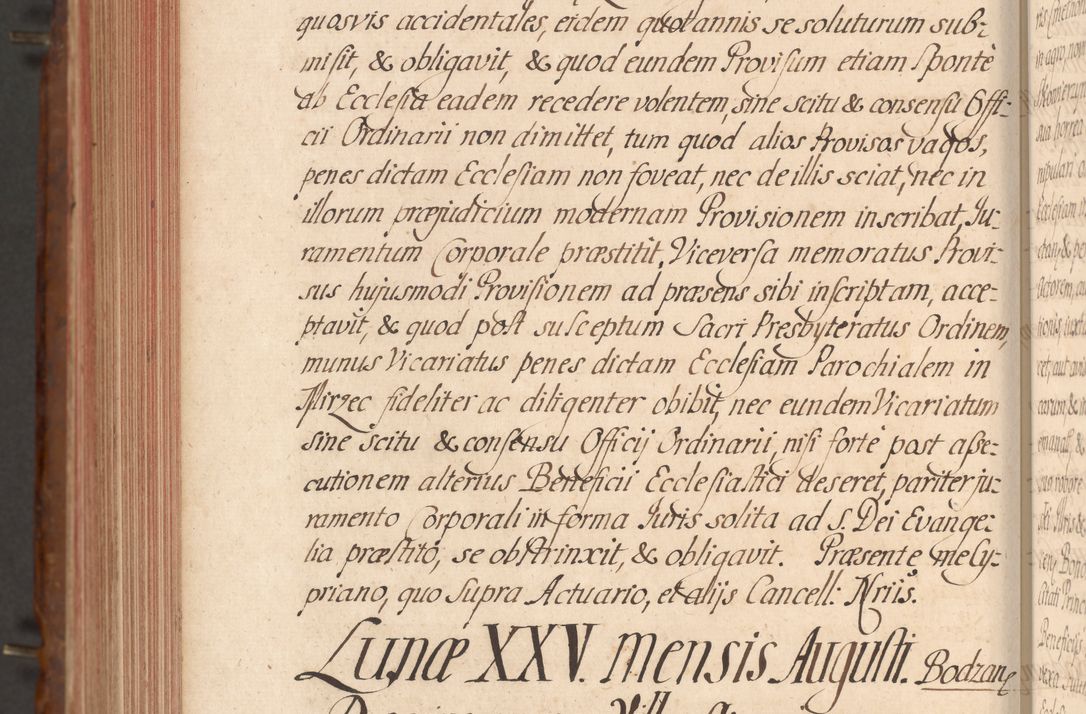 quosvis accidentales, eidem quotannis se soluturum sub-
misit, & obligavit, & quod eundem Provisum etiam sponte
ab Ecclesia eadem recedere volentem, sine scitu & consensu Offi-
cii Ordinarii non dimittet, tum quod alios Provisos vagos,
penes dictam Ecclesiam non foveat, nec de illis sciat, nec in
illorum præjudicium modernam Provisionem inscribat, Ju-
ramentum Corporale præstitit. Viceversa memoratus Provi-
sus hujusmodi Provisionem ad præsens sibi inscriptam, acce-
ptavit, & quod post susceptum Sacri Presbyteratus Ordinem,
munus Vicariatus penes dictam Ecclesiam Parochialem in
Mirzec fideliter ac diligenter obibit, nec eundem Vicariatum
sine scitu & consensu Officij Ordinarii, nisi forte post asse-
cutionem alterius Beneficii Ecclesiastici deseret, pariter ju-
ramento Corporali in forma Juris solita ad S. Dei Evange-
lia præstito, se obstrinxit, & obligavit. Præsente me Cy-
priano, quo supra Actuario, et alijs Cancell: Nriis.
Lunæ XXV. Mensis Augusti. Bodzan